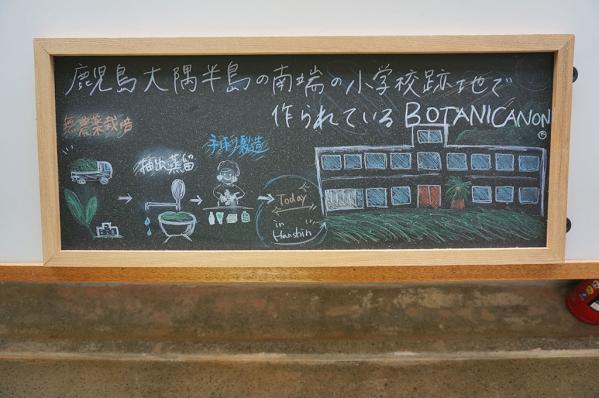 鹿児島大隅半島の南端の小学校跡地で
作られているBOTANICANON®
無農薬栽培
抽出蒸留
手作り製造
Today
in
Hanshin